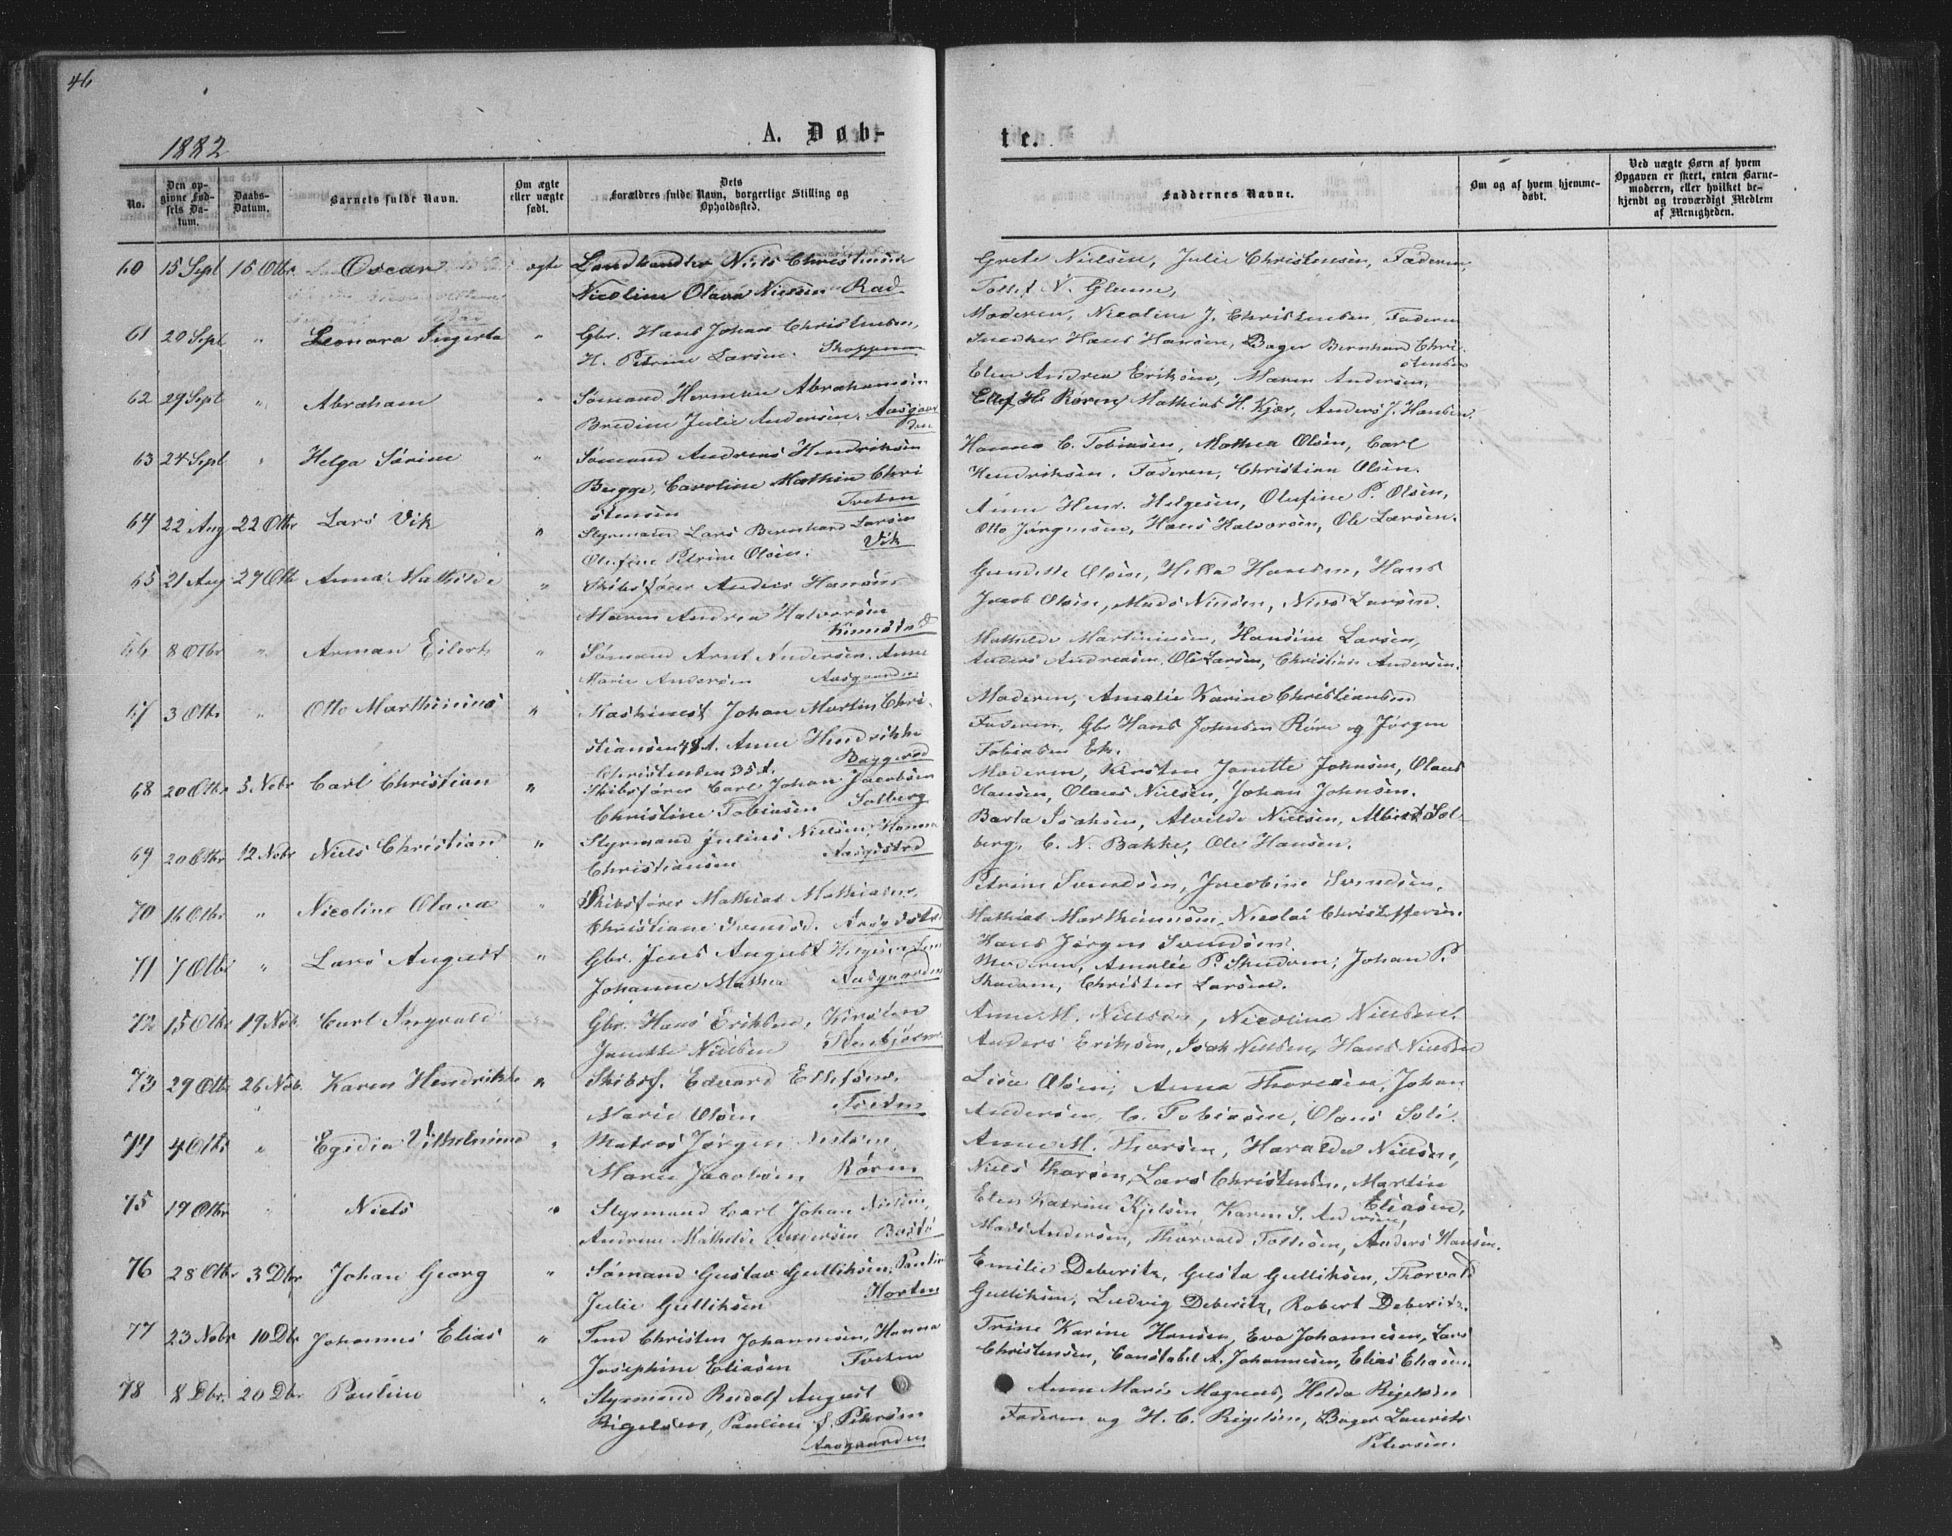 46
1882
A. Døb-
No.
Den opgivne Fødsels Datum.
Daabs-Datum.
Barnets fulde Navn.
Om ægte eller uægte født.
Dets Forældres fulde Navn, borgerlige Stilling og Opholdssted.
60 15 Sept 15 Otbr Oscar ægte Landhandler Niels Christensen
Nicoline Olava Nielsen Rad
61 20 Sept " Leonara Ingerta " Gbr. Hans Johan Christensen,
H. Petrine Larsen. Skoppum
62 29 Sept " Abraham " Sømand Herman Abrahamsen
Bredine Julie Andersen. Aasgaarden
63 24 Sept " Helga Sørine " Sømand Andreas Hendriksen
Bugge, Caroline Mathia Chri
stensen Tveten
64 22 Aug 22 Otbr Lars Vik " Styrmand Lars Bernhard Larsen
Olufine Petrine Olsen. Vik
65 21 Aug 29 Otbr Anna Mathilde " Skibsfører Anders Hansen
Maren Andrea Halvorsen
Kinnestad
66 8 Otbr " Arman Eilert " Sømand Arnt Andersen. Anne
Marie Andersen Aasgaarden
67 3 Otbr " Otto Marthinius " Maskinest Johan Martin Chri-
stiansen 48 A. Anne Hendrikke
Christensen 35 A. Baggerød
68 20 Otbr 5 Nobr Carl Christian " Skibsfører Carl Johan Jacobsen
Christine Tobiasen Solberg
69 20 Otbr 12 Nobr Niels Christian " Styrmand Julius Nielsen, Hanna
Christiansen Aasgistrd
70 16 Otbr " Nicoline Olava " Skibsfører Mathias Mathiasen,
Christiane Svendsd.
71 7 Otbr " Lars August " Gbr. Jens August Helgesen
Johanne Mathea Aasgaarden
72 15 Otbr 19 Nob. Carl Ingvald Gbr. Hans Eriksen, Kirsten
Janette Nielsen Stenbjørn
73 29 Otbr 26 Nob. Karen Hendrikke " Skibsf. Edvard Ellefsen.
Marie Olsen Tveten
74 4 Otbr " Egidia Vilhelmine " Matros Jørgen Nielsen
Maren Jacobsen Rørin
75 19 Otbr " Niels " Styrmand Carl Johan Nielsen,
Andrine Mathilde Andersen
76 28 Otbr 3 Dbr Johan Georg " Sømand Gustav Gulliksen, Pauline
Julie Gulliksen Horten
77 23 Nobr 10 Dbr Johannes Elias " Tmd Christen Johannesen, Hanna
Josephine Eliasen Tveten
78 8 Dbr. 20 Dbr. Pauline " Styrmand Rudolf August
Rigelsen, Pauline f. Petersen
Aasgaarden
te.
Faddernes Navne.
Om og af hvem hjemmedøbt.
Ved uægte Børn af hvem Opgaven er skeet, enten Barnemoderen, eller hvilket bekjendt og troværdigt Medlem af Menigheden.
Grete Nielsen, Julie Christensen, Faderen,
Tollef N. Glenne,
Moderen, Nicoline J. Christensen, Faderen
Snedker Hans Hansen, Bager Bernhard Chri-
stensen
Elen Andrea Eriksen, Maren Andersen,
Ellef H. Røren, Mathias H. Kjær, Anders J. Hansen.
Hanna C. Tobiasen, Mathea Olsen, Carl
Hendriksen, Faderen, Christian Olsen.
Anne Henr. Helgesen, Olufine P. Olsen,
Otto Jørgensen, Hans Halvorsen, Ole Larsen.
Gundette Olsen, Hella Hansen, Hans
Jacob Olsen, Mads Nielsen, Niels Larsen.
Mathilde Martinusen, Hansine Larsen,
Anders Andreasen, Ole Larsen, Christian Andersen.
Moderen, Amalie Karine Christiansen
Faderen, Gbr Hans Johnsen Røre og Jørgen
Tobiassen Ek.
Moderen, Kirsten Janette Johnsen, Olaus
Hansen, Olaves Nielsen, Johan Johnsen.
Berta Isaksen, Alvilde Nielsen, Albert Sol-
berg, C. N. Bakke, Ole Hansen.
Petrine Svendsen, Jacobine Svendsen,
Mathias Marthinusen, Nicolai Christoffersen.
Hans Jørgen Svendsen.
Moderen, Amalie P. Skudem; Johan P.
Skudem, Christen Larsen.
Anne M. Nielsen, Nicoline Nielsen,
Anders Eriksen, Isak Nielsen, Hans Nielsen
Lisa Olsen; Anna Thoresen, Johan
Andersen, C. Tobiasen, Olaus Soli.
Anne M. Thorsen, Haralda Nielsen,
Niels Thorsen, Lars Christensen, Martin
Eliasen,
Elen Katrine Kjelsen Karen S. Andersen,
Mads Andersen, Thorvald Tollefsen, Anders Hansen.
Emilie Deberitz, Gusta Gulliksen, Thorvald
Gulliksen, Ludvig Deberitz, Robert Deberitz.
Trine Karine Hansen, Eva Johannesen, Lars
Christensen, Constabel A. Johannesen, Elias Eliasen.
Anne Marie Magnus, Helda Rigelsen
Faderen og H. C. Rigelsen, Bager Laurits
Petersen.